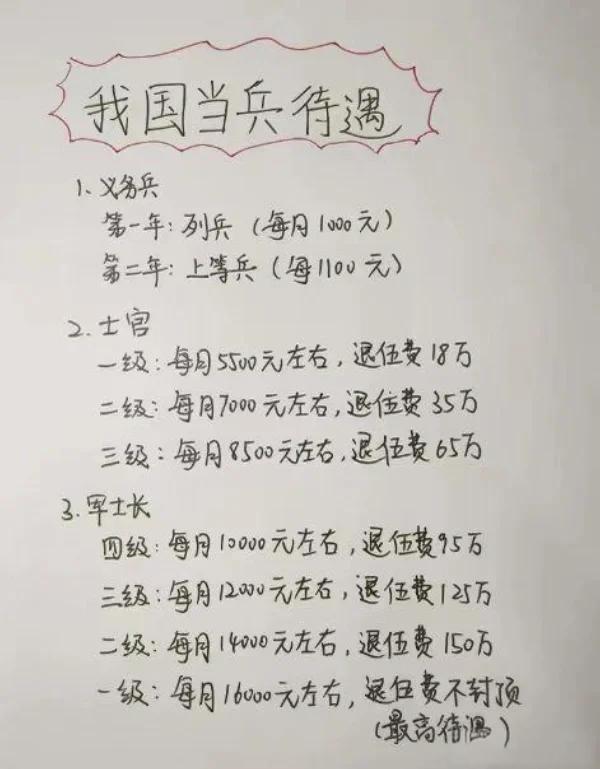 我国当兵待遇
1、义务兵
第一年：列兵（每月1000元）
第二年：上等兵（每1100元）
2、士官
一级：每月5500元左右，退伍费18万
二级：每月7000元左右，退伍费35万
三级：每月8500元左右，退伍费65万
3、军士长
四级：每月10000元左右，退伍费95万
三级：每月12000元左右，退伍费125万
二级：每月14000元左右，退伍费150万
一级：每月16000元左右，退伍费不封顶
（最高待遇）